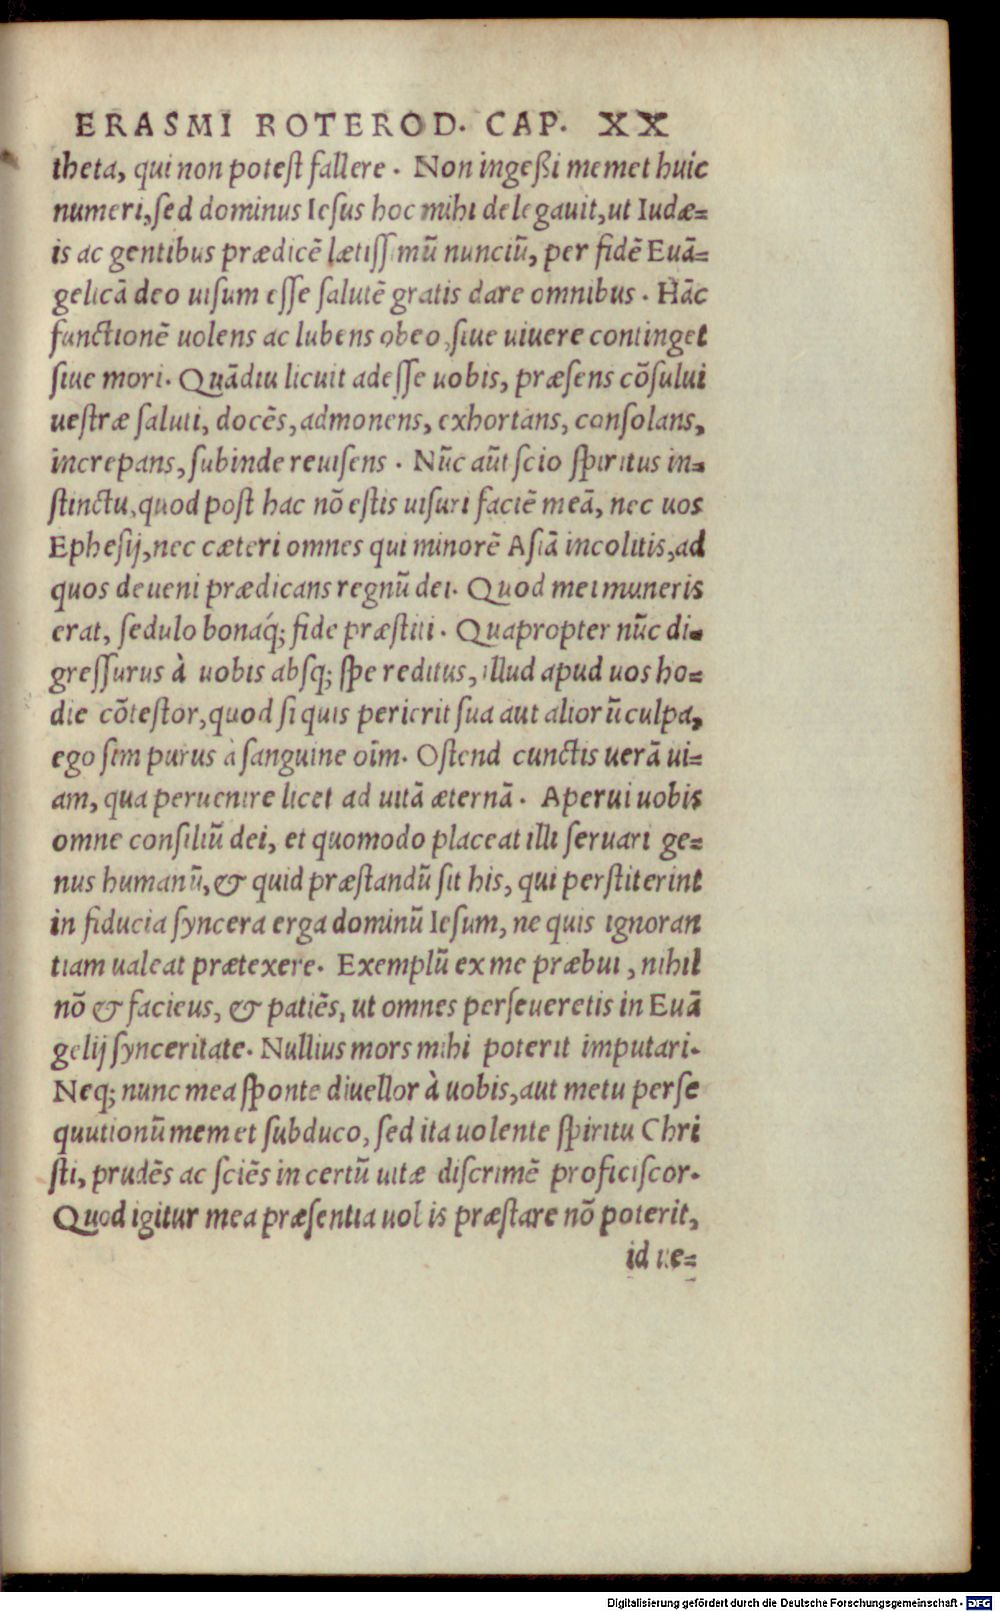 ERASMI ROTEROD. CAP. XX
theta, qui non potest fallere. Non ingeßi memet huic
numeri, sed dominus Iesus hoc mihi delegauit, ut Iudæ=
is ac gentibus prædicē lætissimū nunciū, per fidē Euā=
gelicā deo uisum esse salutē gratis dare omnibus. Hāc
functionē uolens ac lubens obeo, siue uiuere continget
siue mori. Quādiu licuit adesse uobis, præsens cōsului
uestræ saluti, docēs, admonens, exhortans, consolans,
increpans, subinde reuisens. Nūc aūt scio spiritus in=
stinctu, quod post hac nō estis uisuri faciē meā, nec uos
Ephesij, nec cæteri omnes qui minorē Asiā incolitis, ad
quos deueni prædicans regnū dei. Quod mei muneris
erat, sedulo bonaq́; fide præstiti. Quapropter nūc di=
gressurus à uobis absq; spe reditus, illud apud uos ho=
die cōtestor, quod si quis perierit sua aut aliorū culpa,
ego sim purus à sanguine oīm. Ostend cunctis uerā ui=
am, qua peruenire licet ad uitā æternā. Aperui uobis
omne consiliū dei, et quomodo placeat illi seruari ge=
nus humanū, & quid præstandū sit his, qui perstiterint
in fiducia syncera erga dominū Iesum, ne quis ignoran
tiam ualeat prætexere. Exemplū ex me præbui, nihil
nō & facieus, & patiēs, ut omnes perseueretis in Euā
gelij synceritate. Nullius mors mihi poterit imputari.
Neq; nunc mea sponte diuellor à uobis, aut metu perse
quutionū memet subduco, sed ita uolente spiritu Chri
sti, prudēs ac sciēs in certū uitæ discrimē proficiscor.
Quod igitur mea præsentia uolis præstare nō poterit,
id ue=
Digitalisierung gefördert durch die Deutsche Forschungsgemeinschaft - DFG